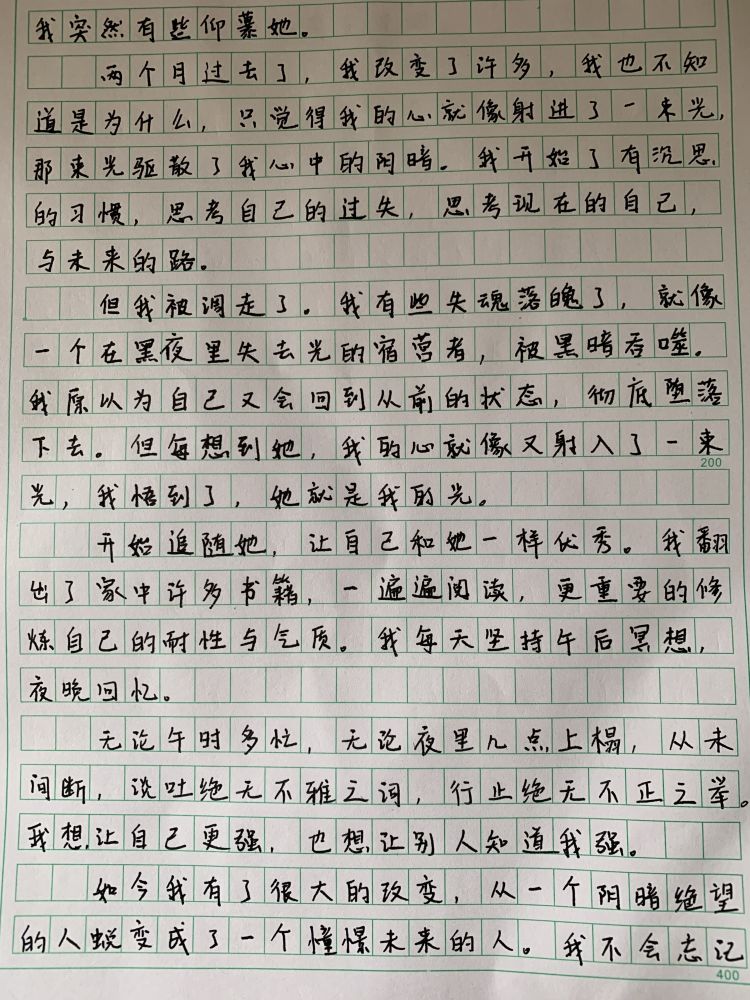 我突然有些仰慕她。
两个月过去了，我改变了许多，我也不知
道是为什么，只觉得我的心就像射进了一束光，
那束光驱散了我心中的阴暗。我开始了有沉思
的习惯，思考自己的过失，思考现在的自己，
与未来的路。
但我被调走了。我有些失魂落魄了，就像
一个在黑夜里失去光的宿营者，被黑暗吞噬。
我原以为自己又会回到从前的状态，彻底堕落
下去。但每想到她，我的心就像又射入了一束
200
光，我悟到了，她就是我的光。
开始追随她，让自己和她一样优秀。我翻
出了家中许多书籍，一遍遍阅读，更重要的修
炼自己的耐性与气质。我每天坚持午后冥想，
夜晚回忆。
无论午时多忙，无论夜里几点上榻，从未
间断，谈吐绝无不雅之词，行止绝无不正之举。
我想让自己更强，也想让别人知道我强。
如今我有了很大的改变，从一个阴暗绝望
的人蜕变成了一个憧憬未来的人。我不会忘记
400